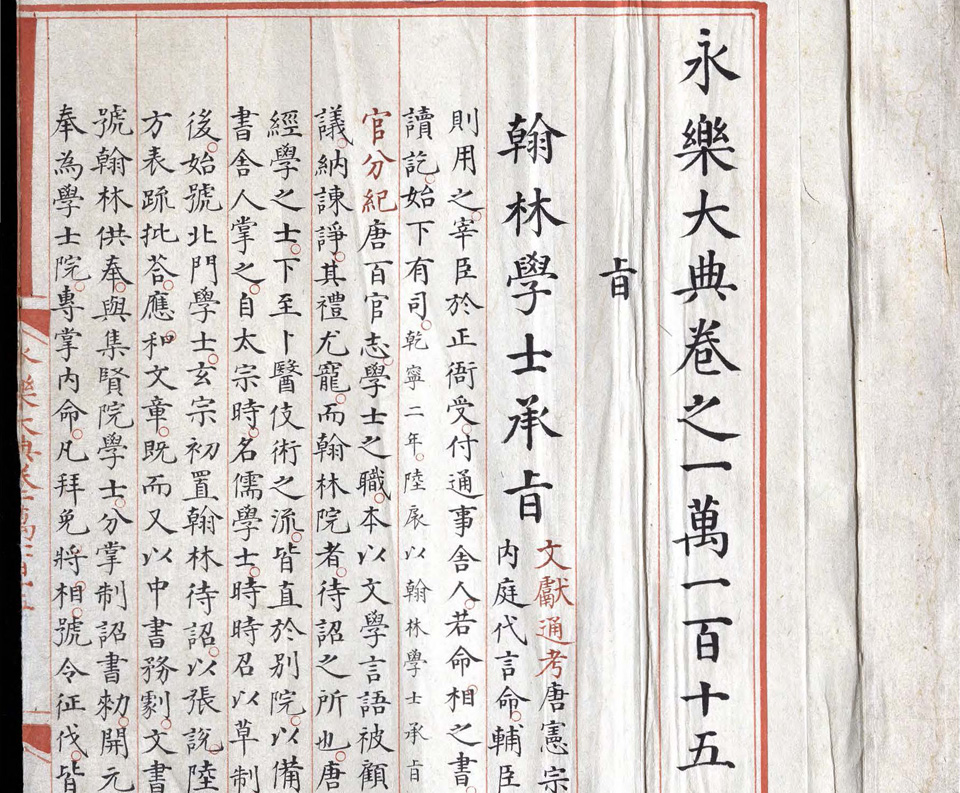 永樂大典卷之一萬一百十五
㫖
翰林學士承㫖
文獻通考唐憲宗
内庭代言命輔臣
則用之宰臣於正衙受付通事舍人若命相之書
讀訖始下有司乾寧二年陸扆以翰林學士承㫖
官分紀唐百官志學士之職本以文學言語被顧
議納諫諍其禮尤寵而翰林院者待詔之所也唐
經學之士下至卜醫伎術之流皆直於别院以備
書舍人掌之自太宗時名儒學士時時召以草制
後始號北門學士玄宗初置翰林待詔以張說陸
方表疏批荅應和文章既而又以中書務劇文書
號翰林供奉與集賢院學士分掌制詔書勑開元
奉為學士院專掌内命凡拜免將相號令征伐皆